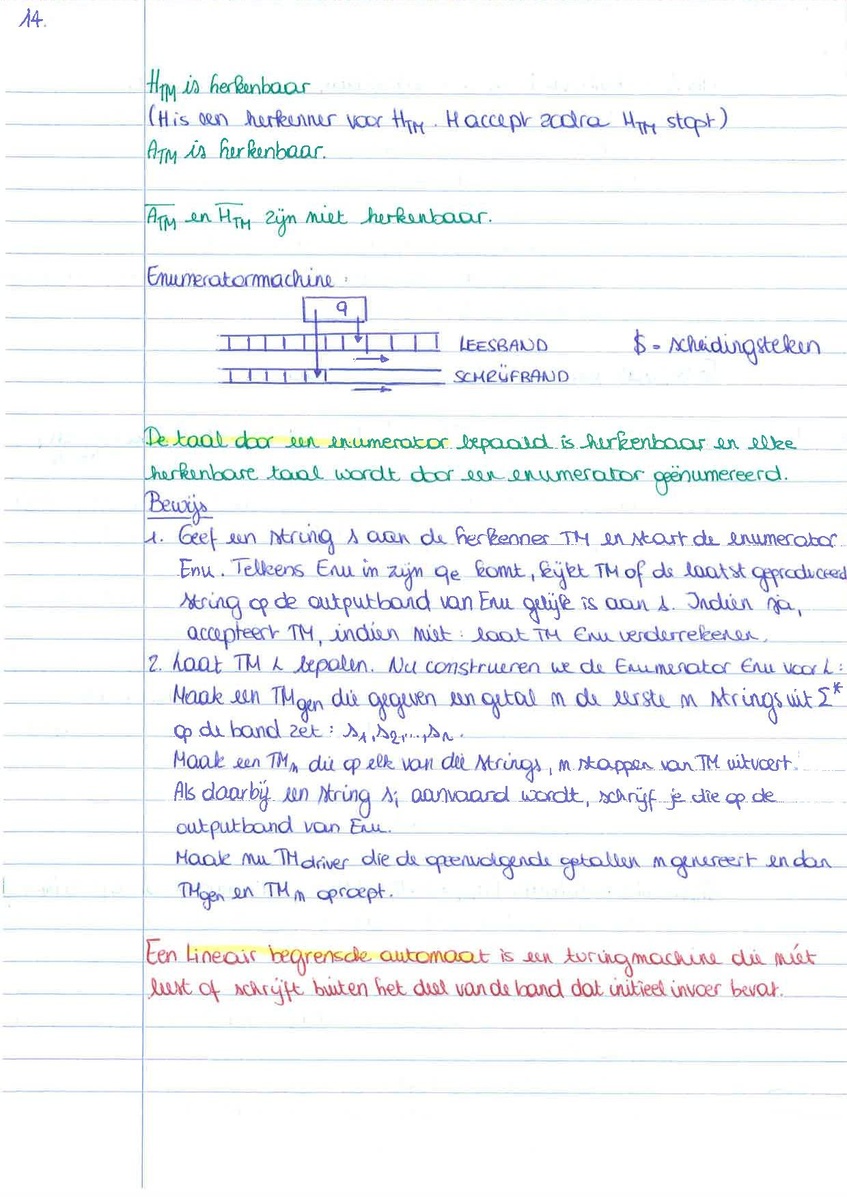 14.
H_TM is herkenbaar
(H is een herkenner voor H_TM. H accept zodra H_TM stopt)
A_TM is herkenbaar.
A̅_TM en H̅_TM zijn niet herkenbaar.
Enumeratormachine:
q
LEESBAND $ = scheidingsteken
SCHRIJFBAND
De taal door een enumerator bepaald is herkenbaar en elke
herkenbare taal wordt door een enumerator geënumereerd.
Bewijs
1. Geef een string s aan de herkenner TM en start de enumerator
Enu. Telkens Enu in zijn qe komt, kijkt TM of de laatst geproduceerd
string op de outputband van Enu gelijk is aan s. Indien ja,
accepteert TM, indien niet: laat TM Enu verderrekenen.
2. Laat TM L bepalen. Nu construeren we de Enumerator Enu voor L:
Maak een TM_gen die gegeven een getal n de eerste n strings uit Σ*
op de band zet: s₁, s₂, ..., sₙ.
Maak een TMₙ die op elk van die strings, n stappen van TM uitvoert.
Als daarbij een string sᵢ aanvaard wordt, schrijf je die op de
outputband van Enu.
Maak nu TM_driver die de opeenvolgende getallen n genereert en dan
TM_gen en TMₙ oproept.
Een Lineair begrensde automaat is een turingmachine die niét
leest of schrijft buiten het deel van de band dat initieel invoer bevat.